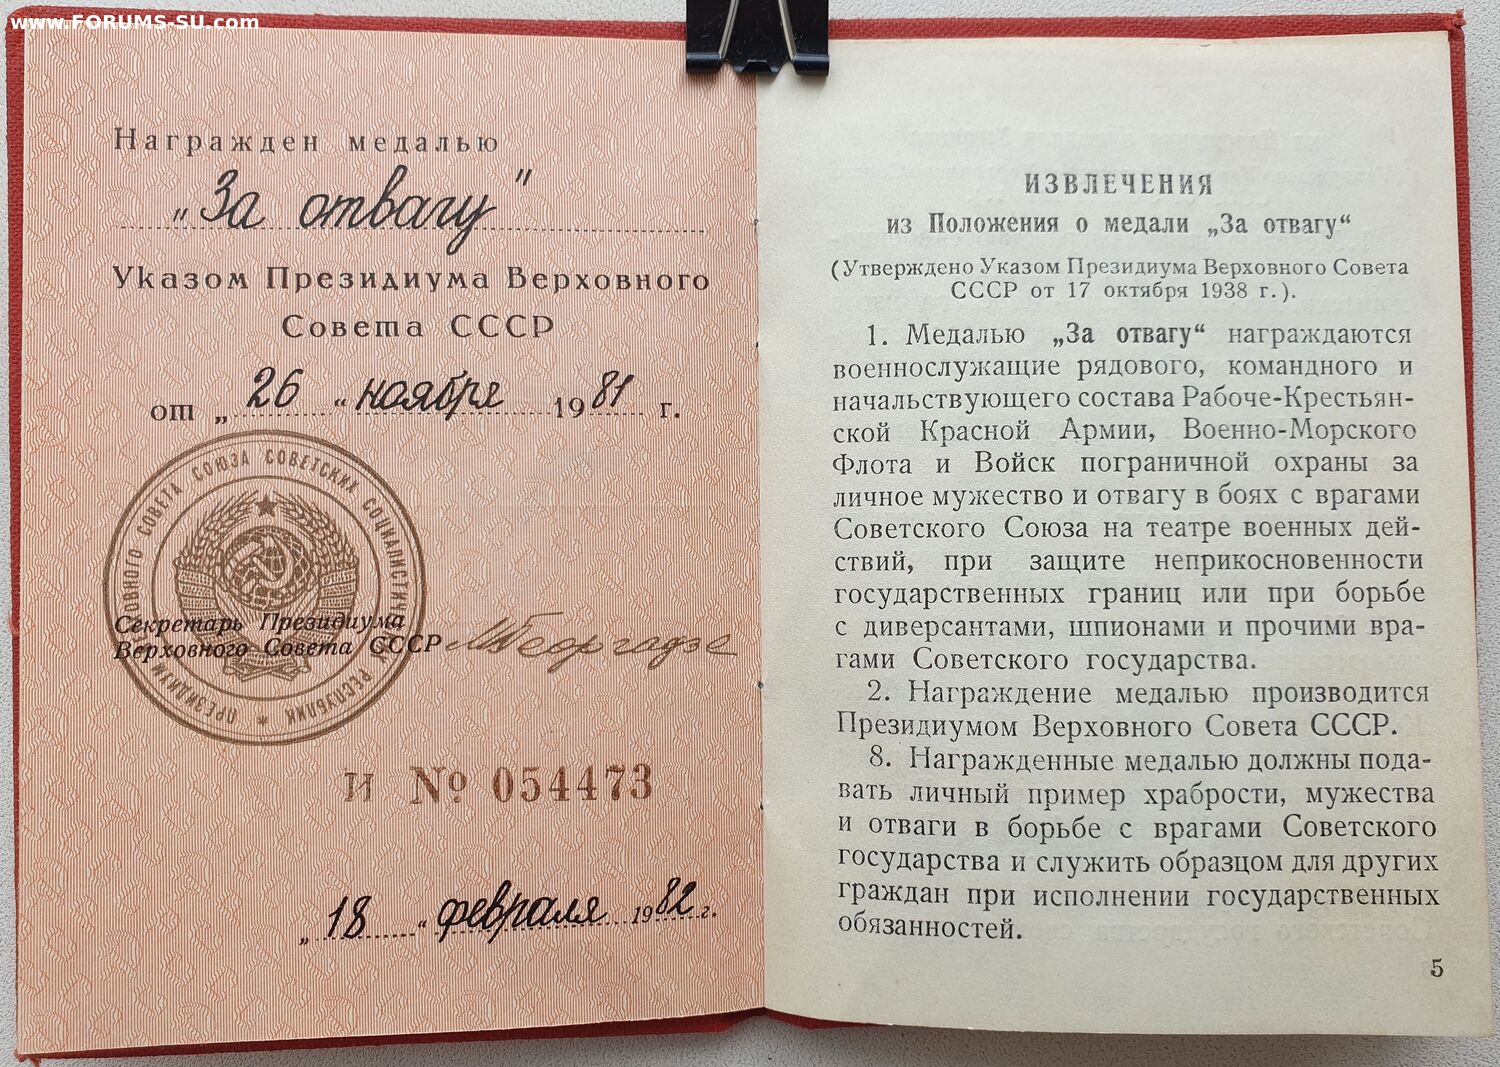 www.FORUMS-SU.com
Награжден медалью
„За отвагу"
Указом Президиума Верховного
Совета СССР
от „ 26 “ ноября 1981 г.
ПРЕЗИДИУМ ВЕРХОВНОГО СОВЕТА СОЮЗА СОВЕТСКИХ СОЦИАЛИСТИЧЕСКИХ РЕСПУБЛИК *
Секретарь Президиума
Верховного Совета СССР МГеоргадзе
И № 054473
„ 18 “ февраля 1982 г.
ИЗВЛЕЧЕНИЯ
из Положения о медали „За отвагу“
(Утверждено Указом Президиума Верховного Совета
СССР от 17 октября 1938 г.).
1. Медалью „За отвагу“ награждаются
военнослужащие рядового, командного и
начальствующего состава Рабоче-Крестьян-
ской Красной Армии, Военно-Морского
Флота и Войск пограничной охраны за
личное мужество и отвагу в боях с врагами
Советского Союза на театре военных дей-
ствий, при защите неприкосновенности
государственных границ или при борьбе
с диверсантами, шпионами и прочими вра-
гами Советского государства.
2. Награждение медалью производится
Президиумом Верховного Совета СССР.
8. Награжденные медалью должны пода-
вать личный пример храбрости, мужества
и отваги в борьбе с врагами Советского
государства и служить образцом для других
граждан при исполнении государственных
обязанностей.
5